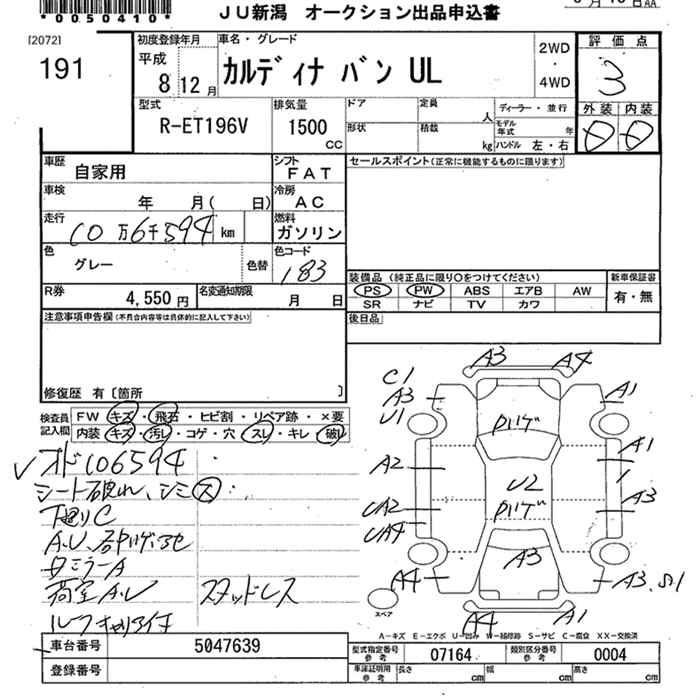 *0050410*
JU新潟 オークション出品申込書
[2072]
191
初度登録年月
平成
8 12月
車名・グレード
カルディナ バン UL
2WD
・
4WD
評価点
3
型式
R-ET196V
排気量
1500
CC
ドア
定員
人
形状
積載
kg
ディーラー・並行
モデル年式 年
ハンドル 左・右
外装 内装
D D
車歴
自家用
シフト
FAT
セールスポイント(正常に機能するものに限ります)
車検
年 月( 日)
冷房
AC
走行
10万6千594 km
燃料
ガソリン
色
グレー
色替
色コード
183
R券
4,550円
名変通知期限
月 日
装備品 (純正品に限り○をつけてください)
PS PW ABS エアB AW
SR ナビ TV カワ
新車保証書
有・無
注意事項申告欄(不具合内容等は具体的に記入して下さい)
後日品
修復歴 有〔箇所 〕
検査員記入欄
FW キズ・飛石・ヒビ割・リペア跡・×要
内装 キズ・汚レ・コゲ・穴・スレ・キレ・破レ
オド106594
シート破れ、シミ ス
下廻りC
A.U
ミラーA
荷室A.U スタッドレス
ルーフキャリア
A3 A4
C1
A3
U1
A1
A2
A1
U2
A3
UA2
UA4
A3
A4
A3.S1
A4
A1
スペア
A-キズ E-エクボ U-凹み W-補修跡 S-サビ C-腐食 XX-交換済
車台番号
5047639
登録番号
型式指定番号
参考
07164
類別区分番号
参考
0004
車庫証明用
参考
長さ cm
幅 cm
高さ cm